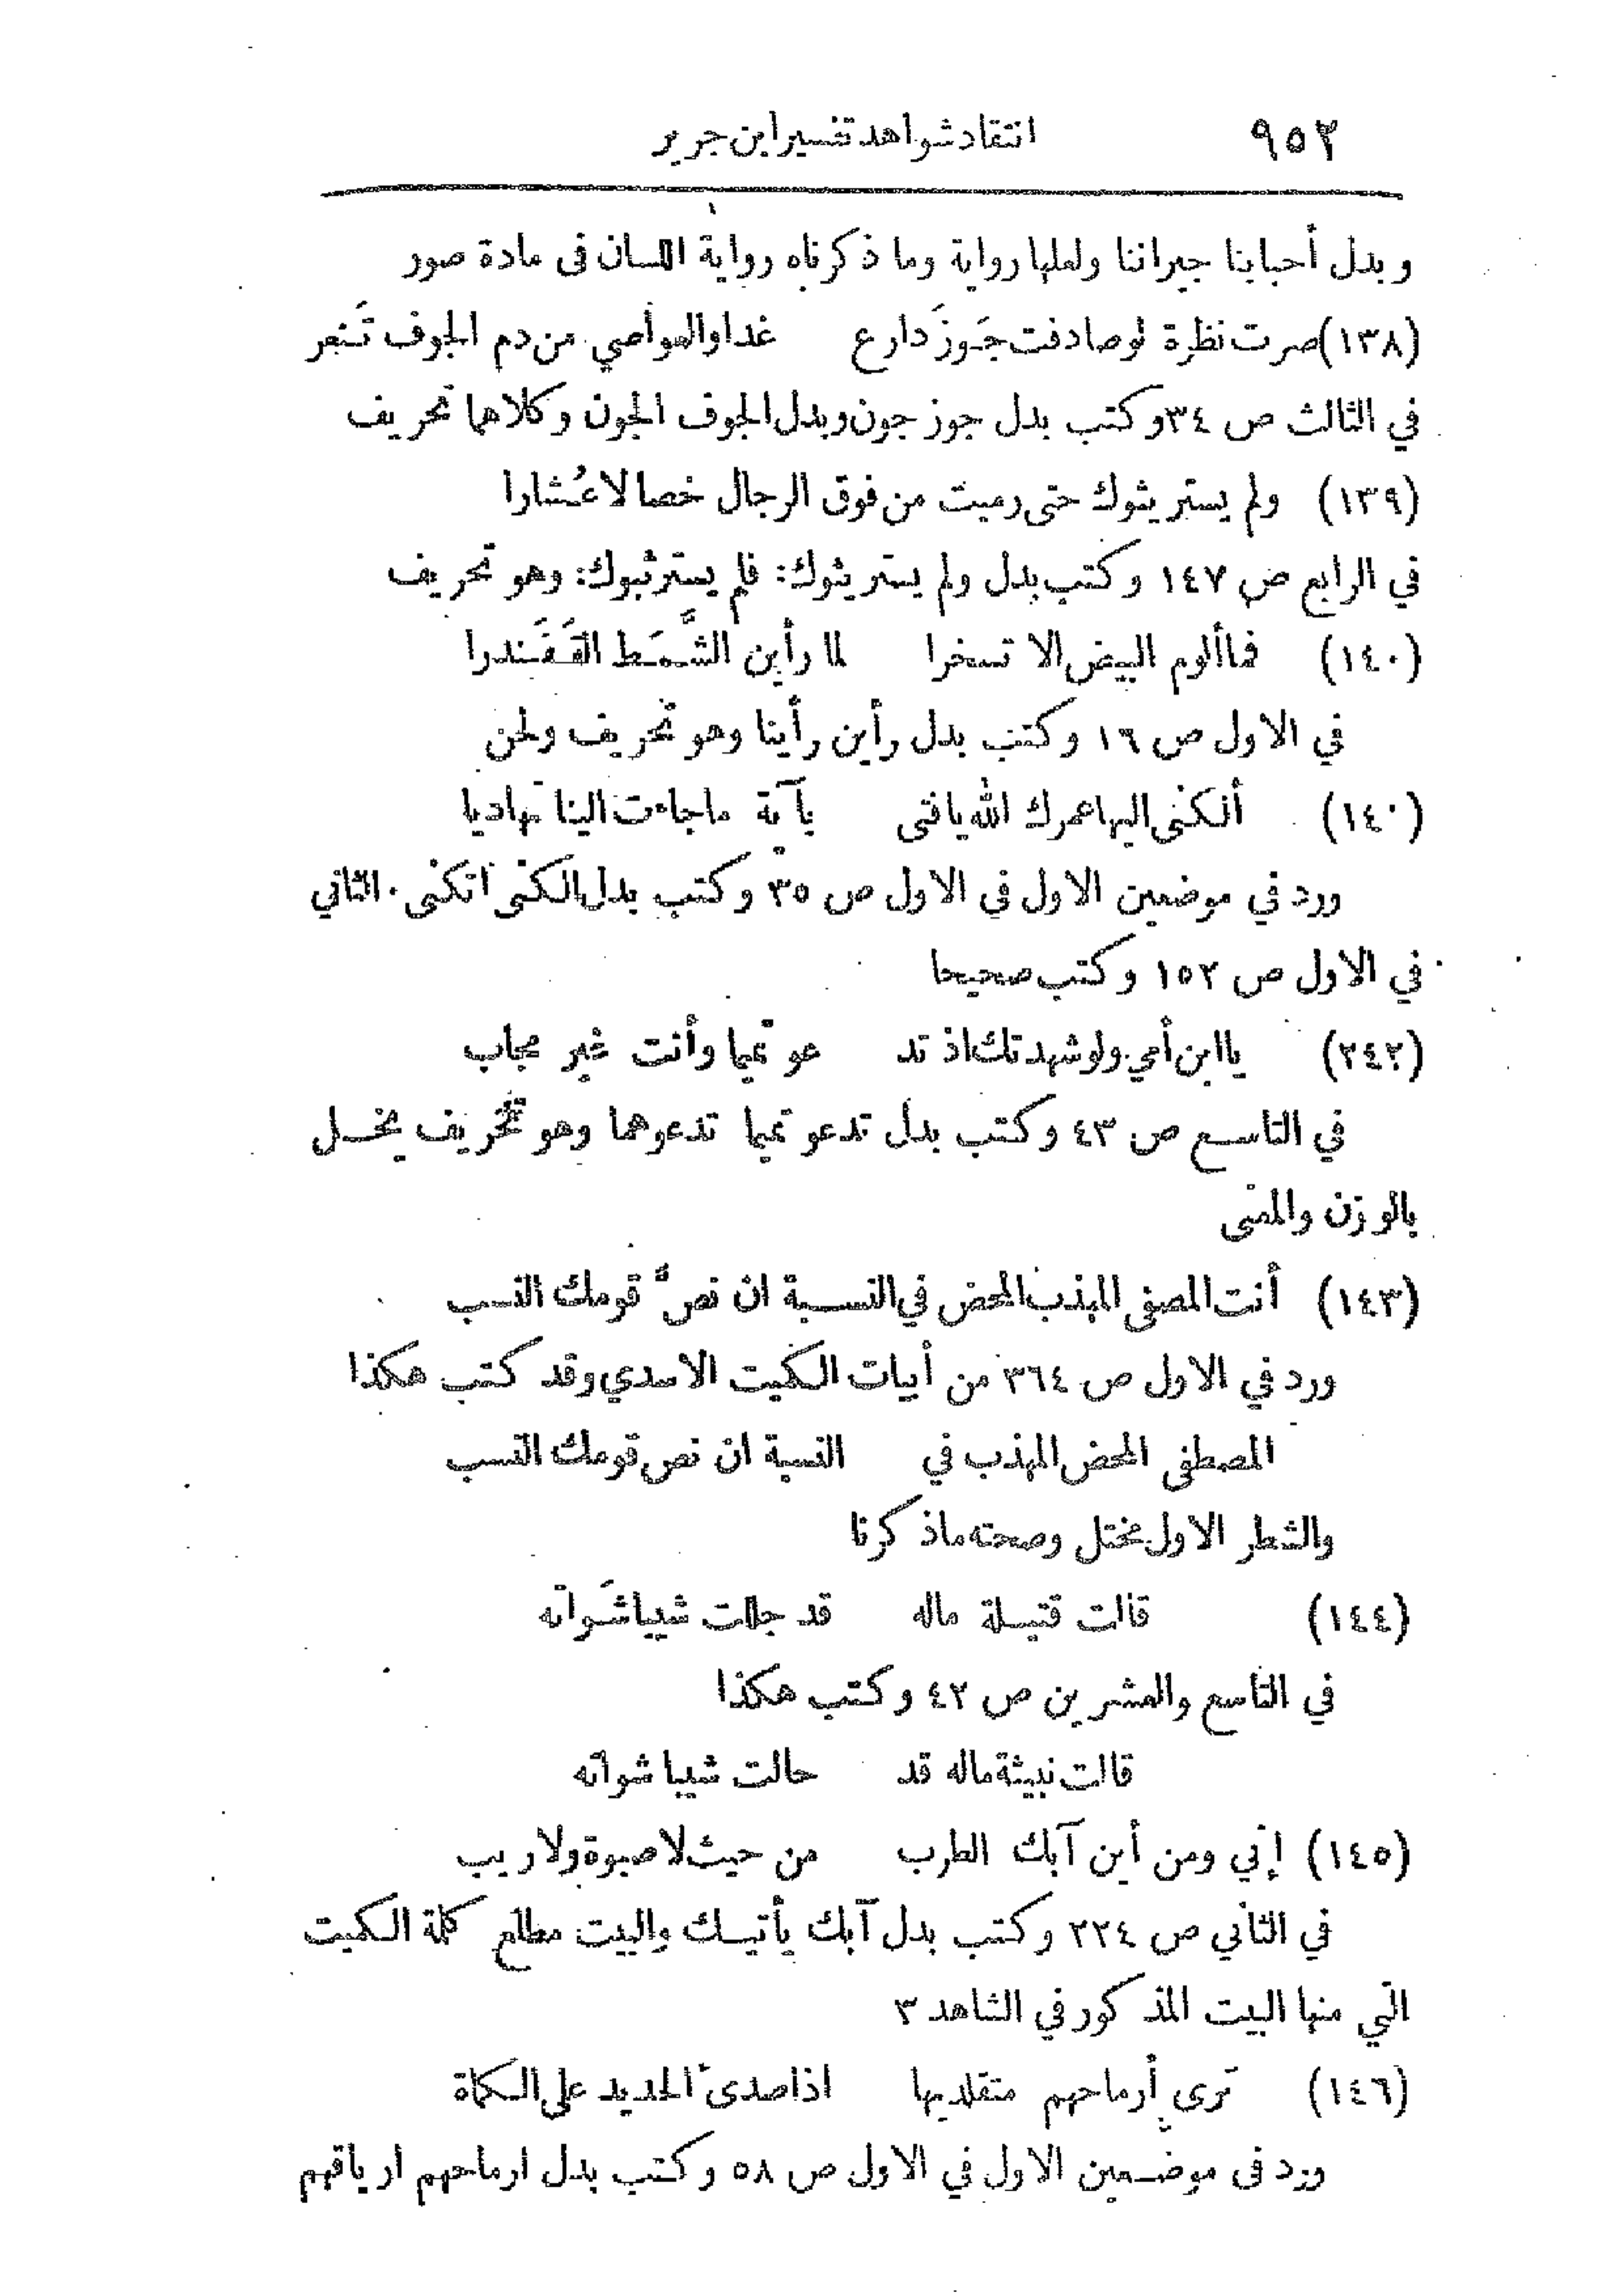 ٩٥٢ انتقاد شواهد تفسير ابن جرير
وبدل أحبابنا جيراننا ولعلها رواية وما ذكرناه رواية اللسان فى مادة صور
(١٣٨) صرت نظرة لو صادفت جَوزَ دارع غدا والعواصي من دم الجوف تَنعر
في الثالث ص ٣٤ وكتب بدل جوز جون وبدل الجوف الجون وكلاهما تحريف
(١٣٩) ولم يستريثوك حتى رميت من فوق الرجال خصالا عُشارا
في الرابع ص ١٤٧ وكتب بدل ولم يستريثوك: فلم يسترثبوك: وهو تحريف
(١٤٠) فما ألوم البيض الا تسخرا لما رأين الشَّمَط القَفَندرا
في الاول ص ١٦ وكتب بدل رأين رأينا وهو تحريف ولحن
(١٤٠) ألكنى اليها عمرك الله يا فتى بآية ما جاءت الينا تهاديا
ورد في موضعين الاول في الاول ص ٣٥ وكتب بدل الكنى اتكنى. الثاني
في الاول ص ١٥٢ وكتب صحيحا
(٢٤٢) يا ابن أمي ولو شهدتك اذ تد عو تميما وأنت غير مجاب
في التاسع ص ٤٣ وكتب بدل تدعو تميما تدعوهما وهو تحريف يخل
بالوزن والمعنى
(١٤٣) أنت المصفى المهذب المحض في النسبة ان نصَّ قومك النسب
ورد في الاول ص ٣٦٤ من أبيات الكميت الاسدي وقد كتب هكذا
المصطفى المحض المهذب في النسبة ان نص قومك النسب
والشطر الاول مختل وصحته ما ذكرنا
(١٤٤) قالت قتيلة ماله قد جللت شيبا شَواته
في التاسع والعشرين ص ٤٢ وكتب هكذا
قالت نبيئة ماله قد حالت شيبا شواته
(١٤٥) إنّي ومن أين آبك الطرب من حيث لا صبوة ولا ريب
في الثاني ص ٢٢٤ وكتب بدل آبك يأتيك والبيت مطلع كلمة الكميت
التي منها البيت المذكور في الشاهد ٣
(١٤٦) ترى أرماحهم متقلديها اذا صدئ الحديد على الكماة
ورد فى موضعين الاول في الاول ص ٥٨ وكتب بدل ارماحهم ارياقهم